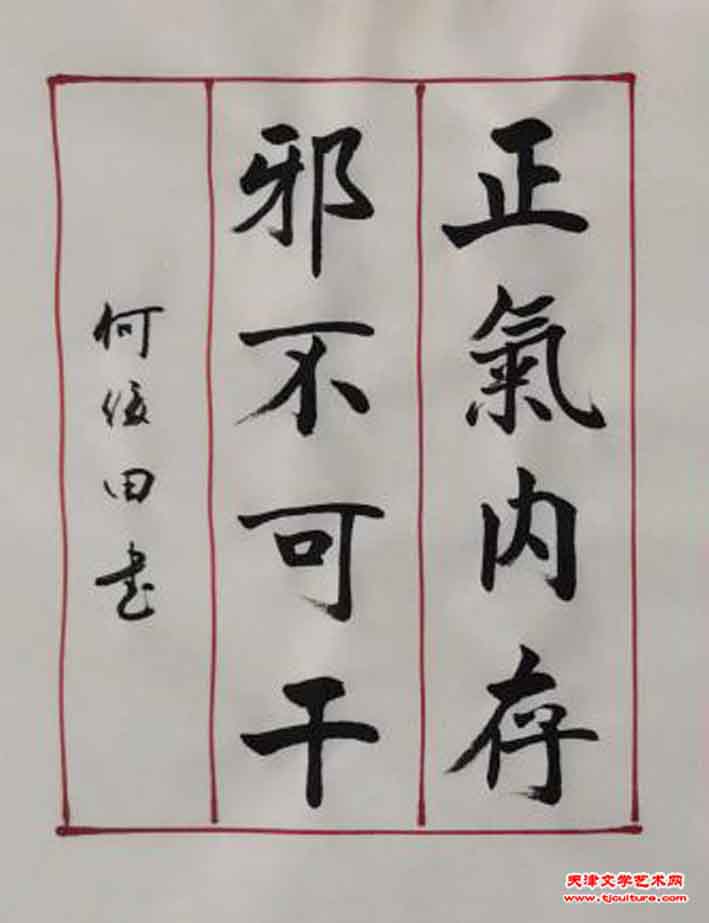 正氣内存
邪不可干
何俊田书
天津文学艺术网
www.tjculture.com